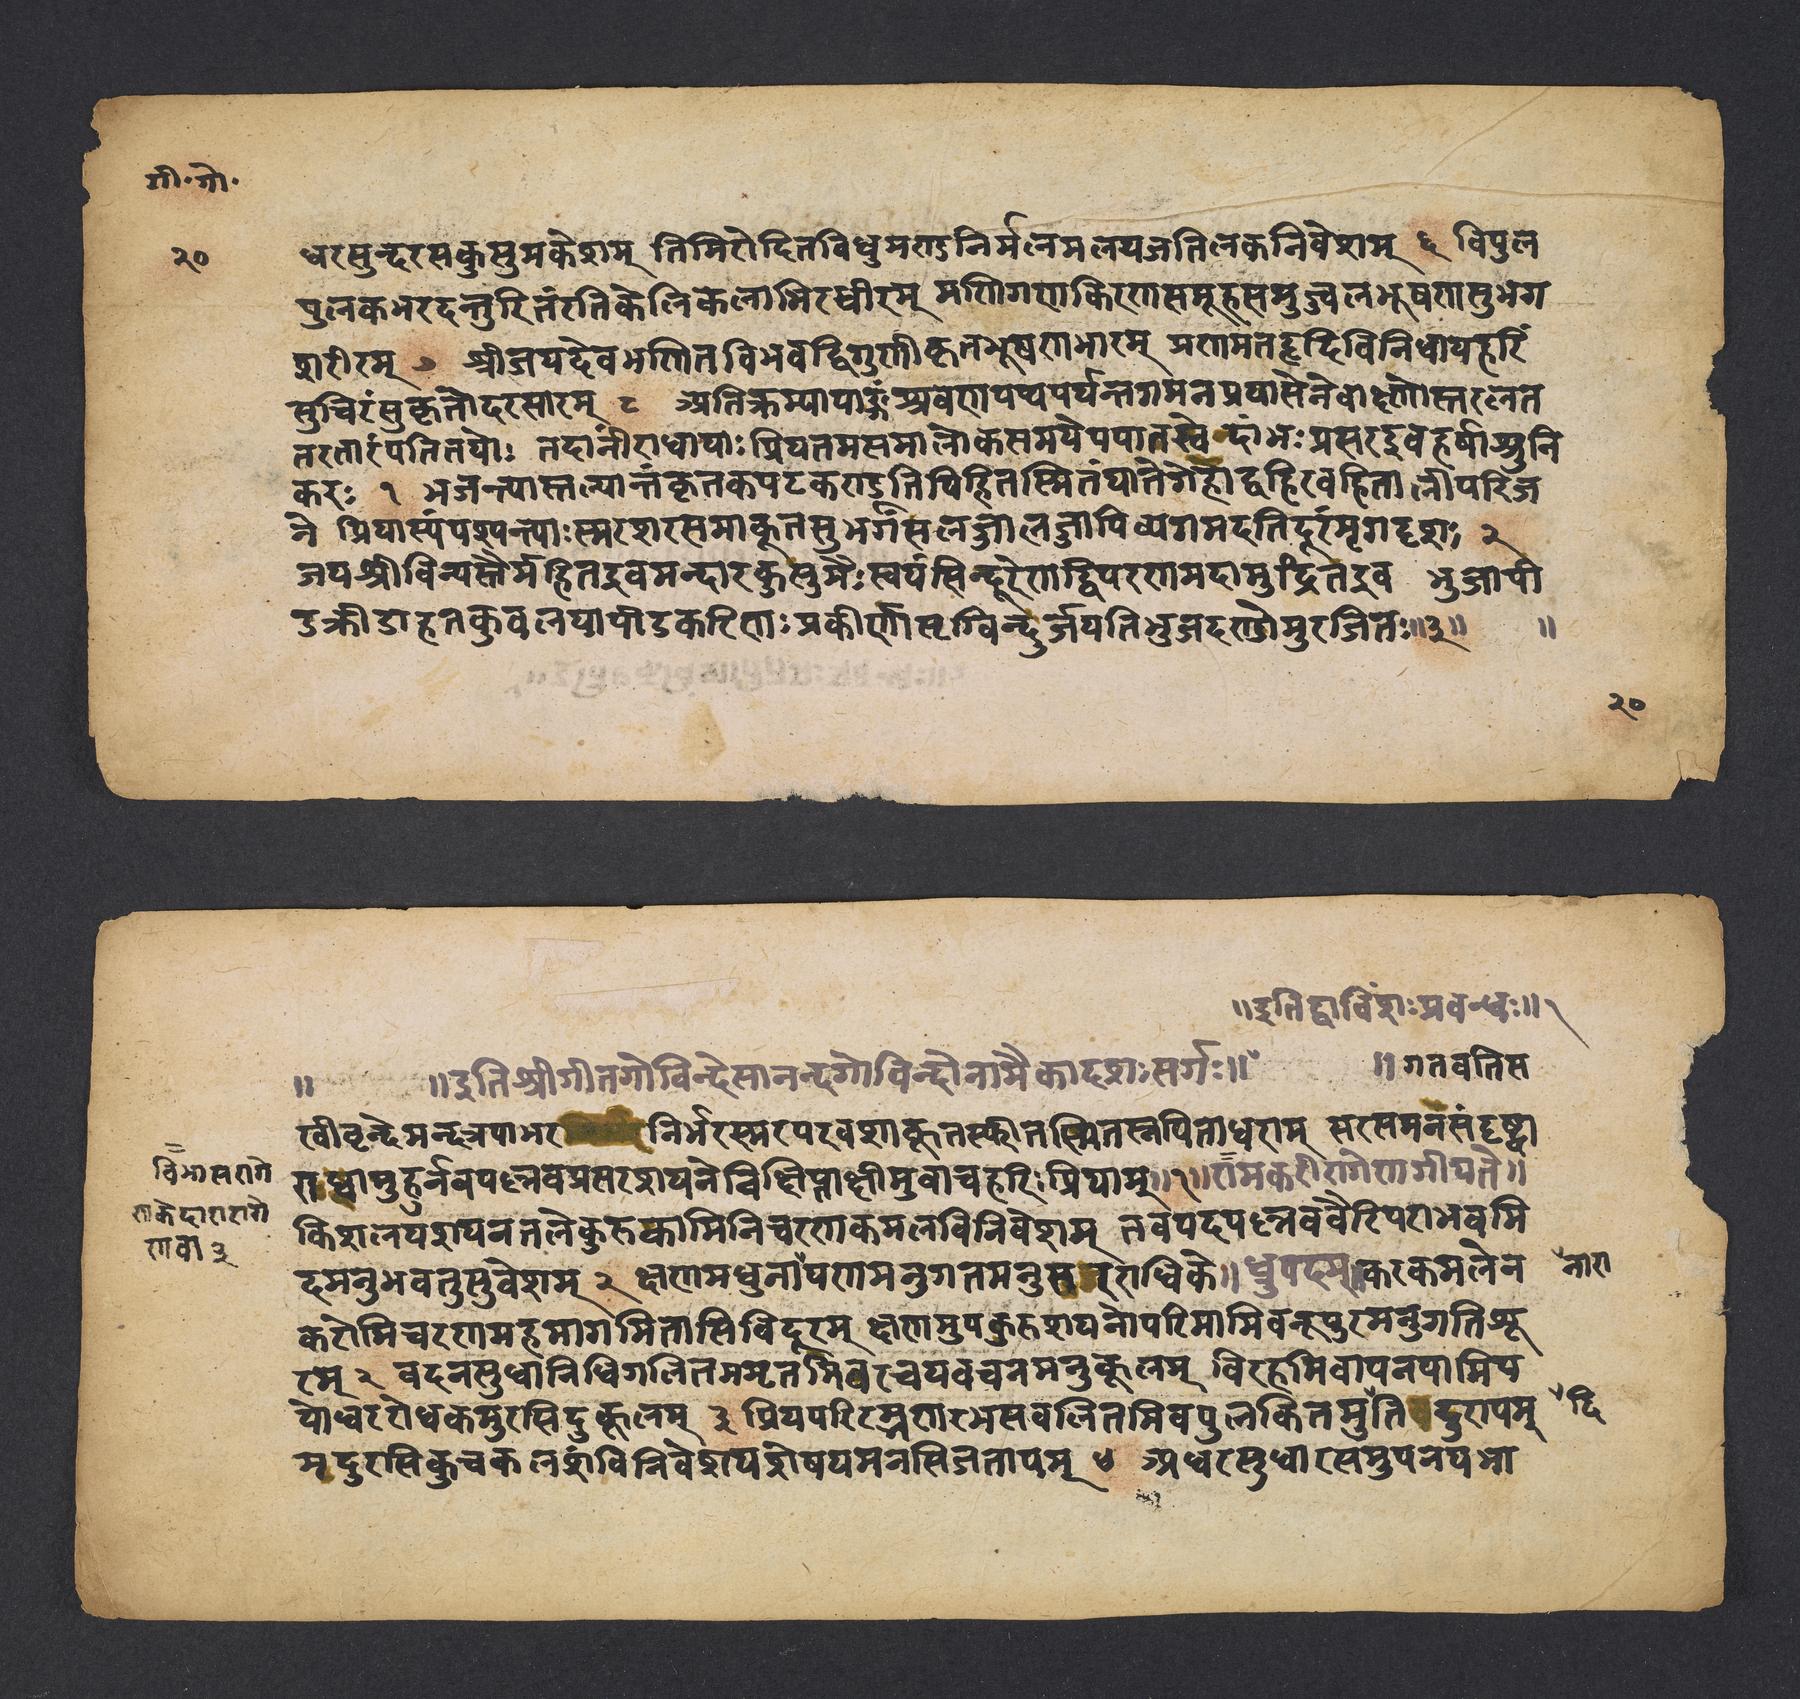 गी॰गो॰
२०
धरसुन्दरसकुसुमकेशम् तिमिरोदितविधुमण्डनिर्मलमलयजतिलकनिवेशम् ६ विपुल
पुलकभरदन्तुरितंरतिकेलिकलाभिरधीरम् मणिगणकिरणसमूहसमुज्ज्वलभूषणसुभग
शरीरम् ७ श्रीजयदेवभणितविभवद्विगुणीकृतभूषणभारम् प्रणमतहृदिविनिधायहरिं
सुचिरंसुकृतोदयसारम् ८ अतिक्रम्यापाङ्गंश्रवणपथपर्यन्तगमनप्रयासेनेवाक्ष्णोस्तरलत
रतारंपतितयोः तदानींराधायाः प्रियतमसमालोकसमयेपपातस्वेदांभः प्रसरइवहर्षाश्रुनि
करः १ भजन्त्यास्तल्पान्तंकृतकपटकण्डूतिपिहितस्मितंयातेगेहाद्बहिरवहितालीपरिज
ने प्रियास्यंपश्यन्त्याःस्मरशरसमाकूतसुभगंसलज्जालज्जापिव्यगमदतिदूरंमृगदृशः २
जयश्रीविन्यस्तैर्महितइवमन्दारकुसुमैः स्वयंसिन्दूरेणद्विपरणमदामुद्रितइव भुजापी
डक्रीडाहतकुवलयापीडकरिणः प्रकीर्णासृग्विन्दुर्जयतिभुजदण्डोमुरजितः॥३॥ ॥
२०
॥इतिद्वाविंशः प्रवन्धः॥
॥ ॥इतिश्रीगीतगोविन्देसानन्दगोविन्दोनामैकादशः सर्गः॥ ॥गतवतिस
खीवृन्देमन्दत्रपाभर निर्भरस्मरपरवशाकूतस्फीतस्मितस्नपिताधराम् सरसमनसंदृष्ट्वा
राधांमुहुर्नवपल्लवप्रसरशयनेनिक्षिप्ताक्षीमुवाचहरिः प्रियाम्॥१॥रामकरीरागेणगीयते॥
विभासरागे
णकेदारारागे
णवा ३
किशलयशयनतलेकुरुकामिनिचरणकमलविनिवेशम् तवपदपल्लववैरिपराभवमि
दमनुभवतुसुवेशम् २ क्षणमधुनापणमनुगतमनुसरराधिके॥ध्रुपदम्॥करकमलेन
नारा
करोमिचरणमहमागमितासिविदूरम् क्षणमुपकुरुशयनोपरिमामिवनूपुरमनुगतिशू
रम् २ वदनसुधानिधिगलितममृतमिवरचयवचनमनुकूलम् विरहमिवापनयामिप
योधररोधकमुरसिदुकूलम् ३ प्रियपरिरम्भणरभसवलितमिवपुलकितमुतिदुरापम्
द्दि
मदुरसिकुचकलशंविनिवेशयशोषयमनसिजतापम् ४ अधरसुधारसमुपनयभा